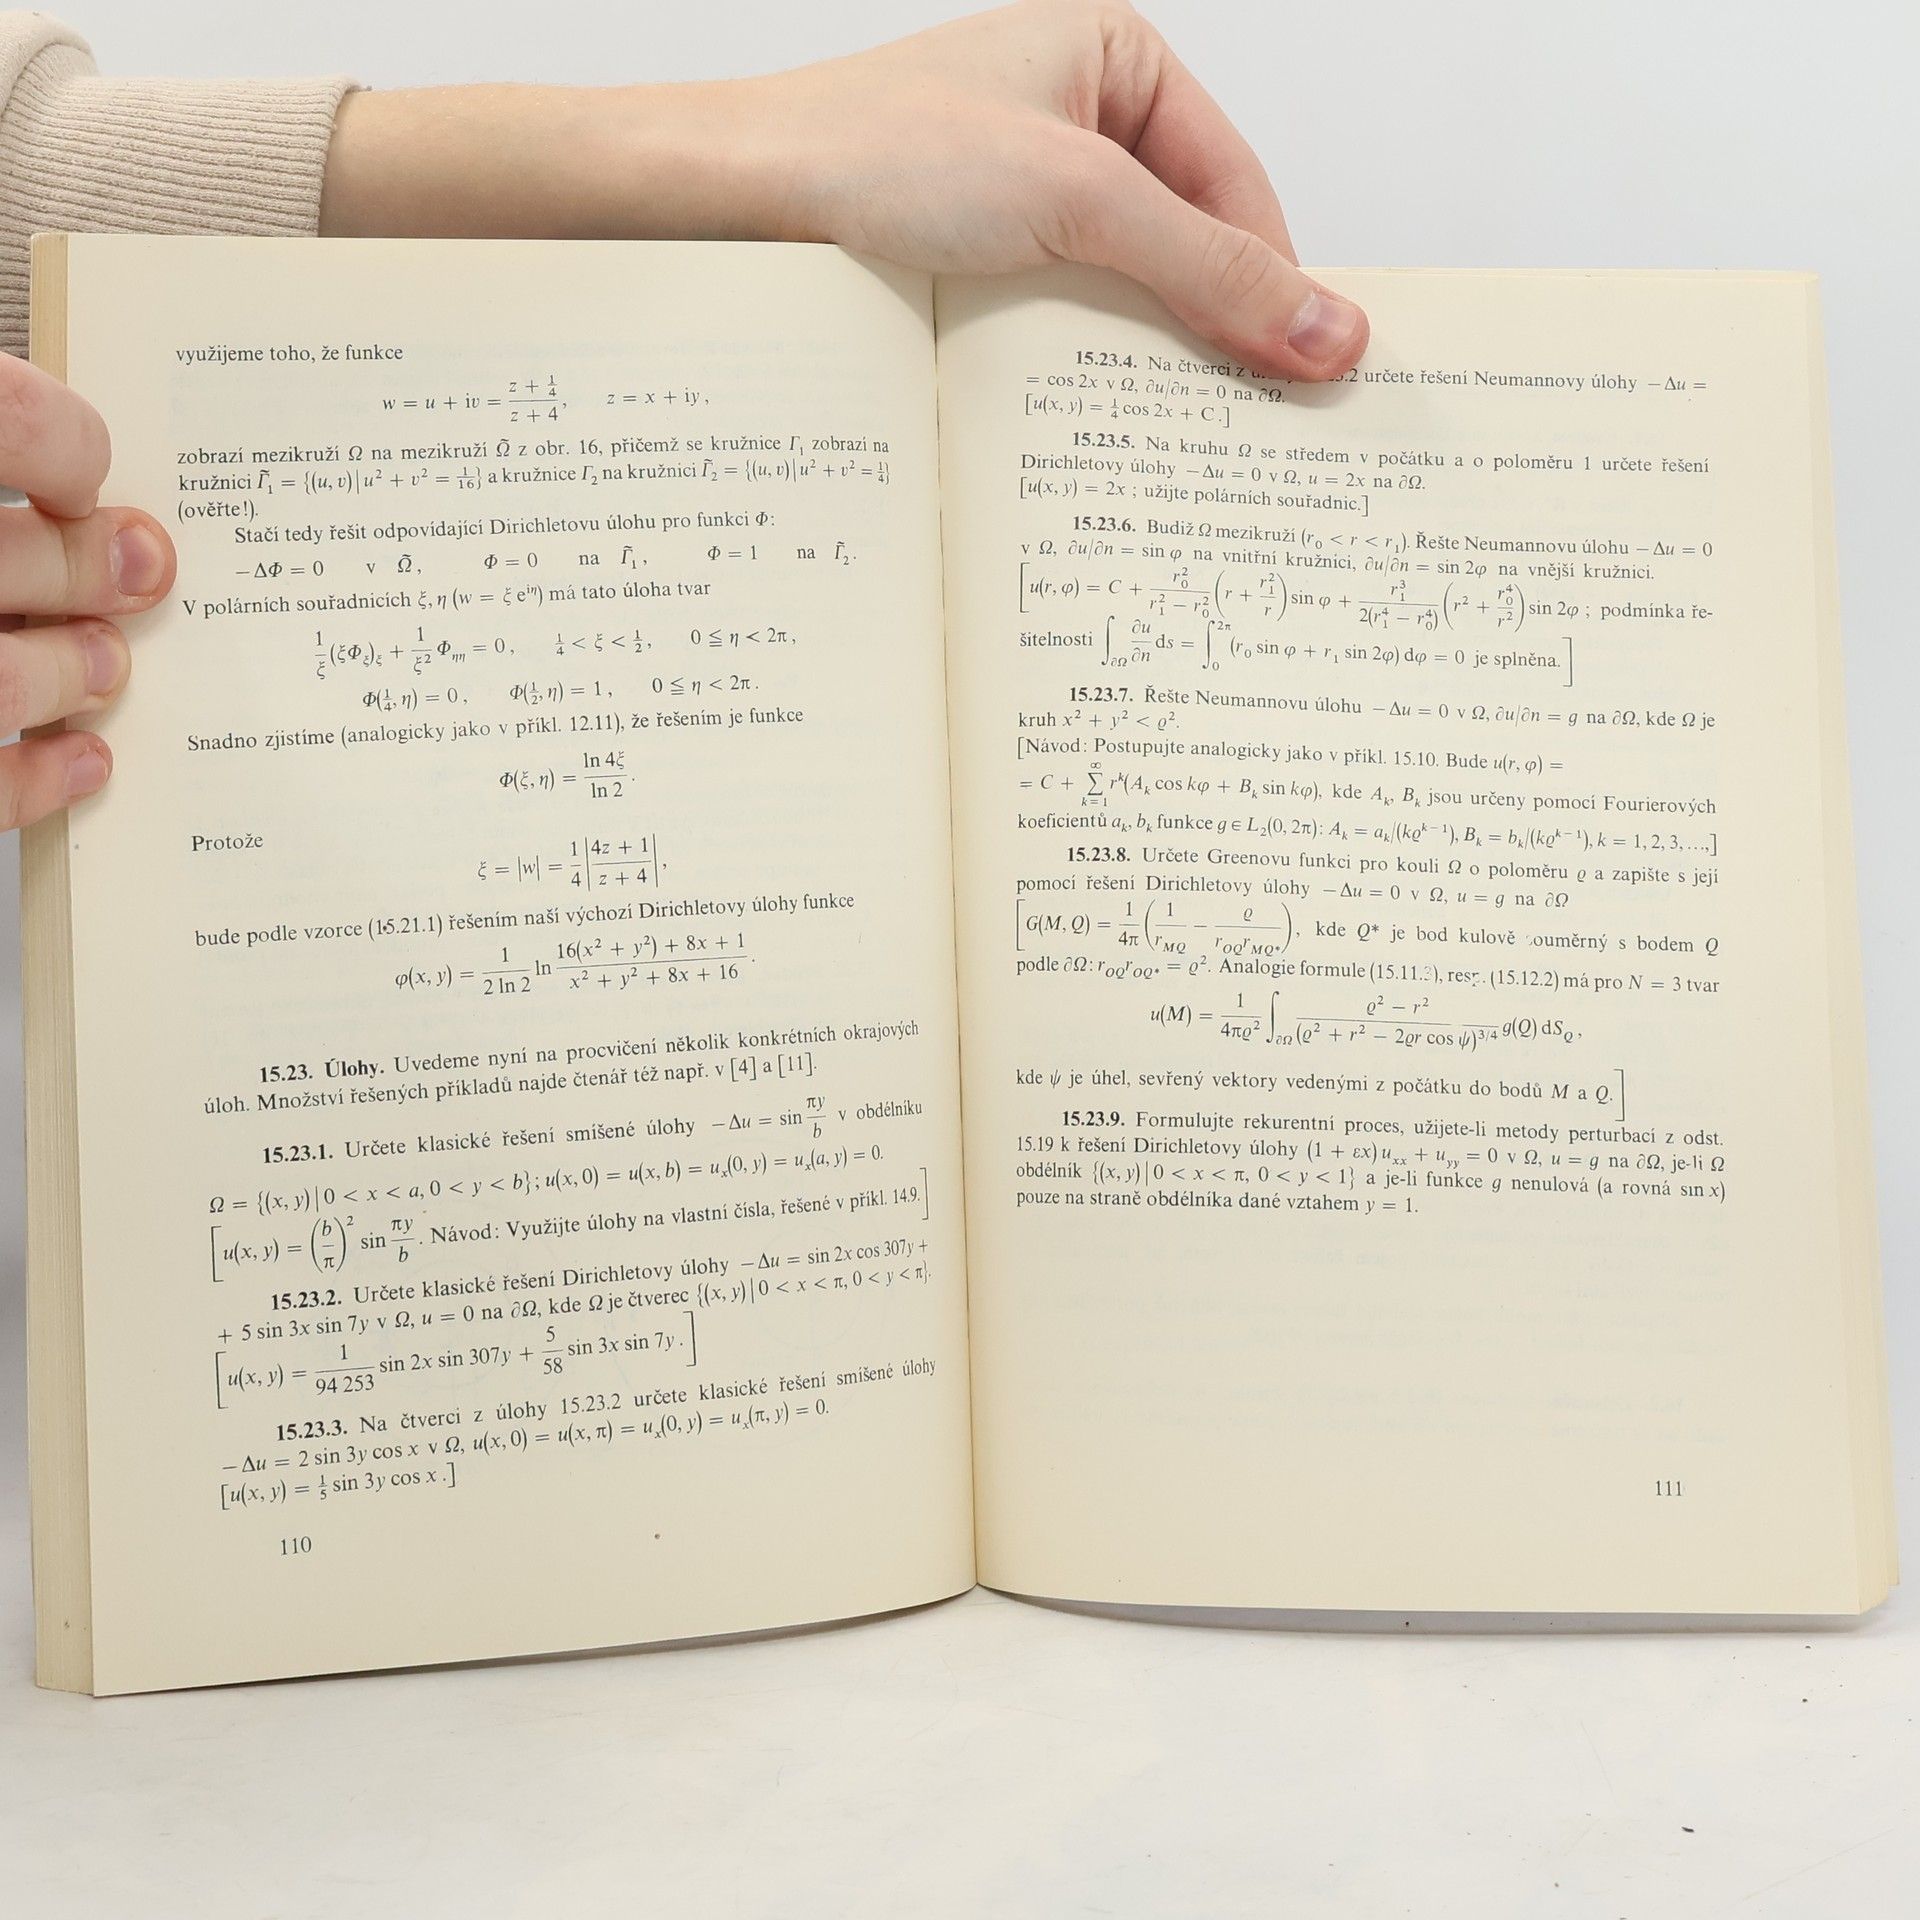 využijeme toho, že funkce
w = u + iv = (z + 1/4)/(z + 4), z = x + iy,
zobrazí mezikruží Ω na mezikruží Ω̃ z obr. 16, přičemž se kružnice Γ₁ zobrazí na
kružnici Γ̃₁ = {(u, v) | u² + v² = 1/16} a kružnice Γ₂ na kružnici Γ̃₂ = {(u, v) | u² + v² = 1/4}
(ověřte!).
Stačí tedy řešit odpovídající Dirichletovu úlohu pro funkci Φ:
−ΔΦ = 0 v Ω̃, Φ = 0 na Γ̃₁, Φ = 1 na Γ̃₂.
V polárních souřadnicích ξ, η (w = ξ e^{iη}) má tato úloha tvar
1/ξ (ξΦ_ξ)_ξ + 1/ξ² Φ_ηη = 0, 1/4 < ξ < 1/2, 0 ≦ η < 2π,
Φ(1/4, η) = 0, Φ(1/2, η) = 1, 0 ≦ η < 2π.
Snadno zjistíme (analogicky jako v příkl. 12.11), že řešením je funkce
Φ(ξ, η) = ln 4ξ / ln 2.
Protože
ξ = |w| = 1/4 |(4z + 1)/(z + 4)|,
bude podle vzorce (15.21.1) řešením naší výchozí Dirichletovy úlohy funkce
φ(x, y) = 1/(2 ln 2) ln (16(x² + y²) + 8x + 1)/(x² + y² + 8x + 16).
15.23. Úlohy. Uvedeme nyní na procvičení několik konkrétních okrajových
úloh. Množství řešených příkladů najde čtenář též např. v [4] a [11].
15.23.1. Určete klasické řešení smíšené úlohy −Δu = sin πy/b v obdélníku
Ω = {(x, y) | 0 < x < a, 0 < y < b}; u(x, 0) = u(x, b) = u_x(0, y) = u_x(a, y) = 0.
[u(x, y) = (b/π)² sin πy/b. Návod: Využijte úlohy na vlastní čísla, řešené v příkl. 14.9.]
15.23.2. Určete klasické řešení Dirichletovy úlohy −Δu = sin 2x cos 307y +
+ 5 sin 3x sin 7y v Ω, u = 0 na ∂Ω, kde Ω je čtverec {(x, y) | 0 < x < π, 0 < y < π}.
[u(x, y) = 1/94 253 sin 2x sin 307y + 5/58 sin 3x sin 7y.]
15.23.3. Na čtverci z úlohy 15.23.2 určete klasické řešení smíšené úlohy
−Δu = 2 sin 3y cos x v Ω, u(x, 0) = u(x, π) = u_x(0, y) = u_x(π, y) = 0.
[u(x, y) = 1/5 sin 3y cos x.]
110
15.23.4. Na čtverci z 2 určete řešení Neumannovy úlohy −Δu =
= cos 2x v Ω, ∂u/∂n = 0 na ∂Ω.
[u(x, y) = 1/4 cos 2x + C.]
15.23.5. Na kruhu Ω se středem v počátku a o poloměru 1 určete řešení
Dirichletovy úlohy −Δu = 0 v Ω, u = 2x na ∂Ω.
[u(x, y) = 2x ; užijte polárních souřadnic.]
15.23.6. Budiž Ω mezikruží (r₀ < r < r₁). Řešte Neumannovu úlohu −Δu = 0
v Ω, ∂u/∂n = sin φ na vnitřní kružnici, ∂u/∂n = sin 2φ na vnější kružnici.
[u(r, φ) = C + r₀²/(r₁² − r₀²) (r + r₁²/r) sin φ + r₁³/(2(r₁⁴ − r₀⁴)) (r² + r₀⁴/r²) sin 2φ ; podmínka ře-
šitelnosti ∫_∂Ω ∂u/∂n ds = ∫₀^{2π} (r₀ sin φ + r₁ sin 2φ) dφ = 0 je splněna.]
15.23.7. Řešte Neumannovu úlohu −Δu = 0 v Ω, ∂u/∂n = g na ∂Ω, kde Ω je
kruh x² + y² < ϱ².
[Návod: Postupujte analogicky jako v příkl. 15.10. Bude u(r, φ) =
= C + ∑_{k=1}^∞ r^k(A_k cos kφ + B_k sin kφ), kde A_k, B_k jsou určeny pomocí Fourierových
koeficientů a_k, b_k funkce g ∈ L₂(0, 2π): A_k = a_k/(kϱ^{k−1}), B_k = b_k/(kϱ^{k−1}), k = 1, 2, 3, ...,]
15.23.8. Určete Greenovu funkci pro kouli Ω o poloměru ϱ a zapište s její
pomocí řešení Dirichletovy úlohy −Δu = 0 v Ω, u = g na ∂Ω
[G(M, Q) = 1/4π (1/r_MQ − ϱ/(r_OQ r_MQ*)), kde Q* je bod kulově souměrný s bodem Q
podle ∂Ω: r_OQ r_OQ* = ϱ². Analogie formule (15.11.3), resp. (15.12.2) má pro N = 3 tvar
u(M) = 1/(4πϱ²) ∫_∂Ω (ϱ² − r²)/(ϱ² + r² − 2ϱr cos ψ)^{3/4} g(Q) dS_Q,
kde ψ je úhel, sevřený vektory vedenými z počátku do bodů M a Q.]
15.23.9. Formulujte rekurentní proces, užijete-li metody perturbací z odst.
15.19 k řešení Dirichletovy úlohy (1 + εx) u_xx + u_yy = 0 v Ω, u = g na ∂Ω, je-li Ω
obdélník {(x, y) | 0 < x < π, 0 < y < 1} a je-li funkce g nenulová (a rovná sin x)
pouze na straně obdélníka dané vztahem y = 1.
111